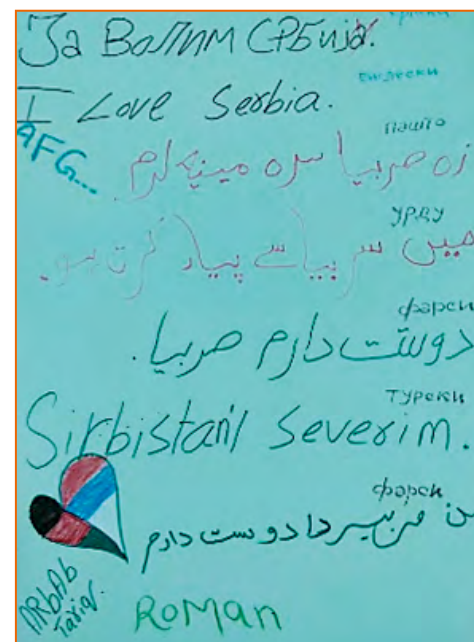 српски
За Волим СРБија.
енглески
I Love Serbia.
AFG...
пашто
زه صربیا سره مینه لرم.
урду
میں سربیا سے پیار کرت ہو.
фарси
دوست دارم صربیا.
Турски
Sirbistan'ı Severim.
фарси
دوست دارم
ARbAb
Tariq.
RoMan